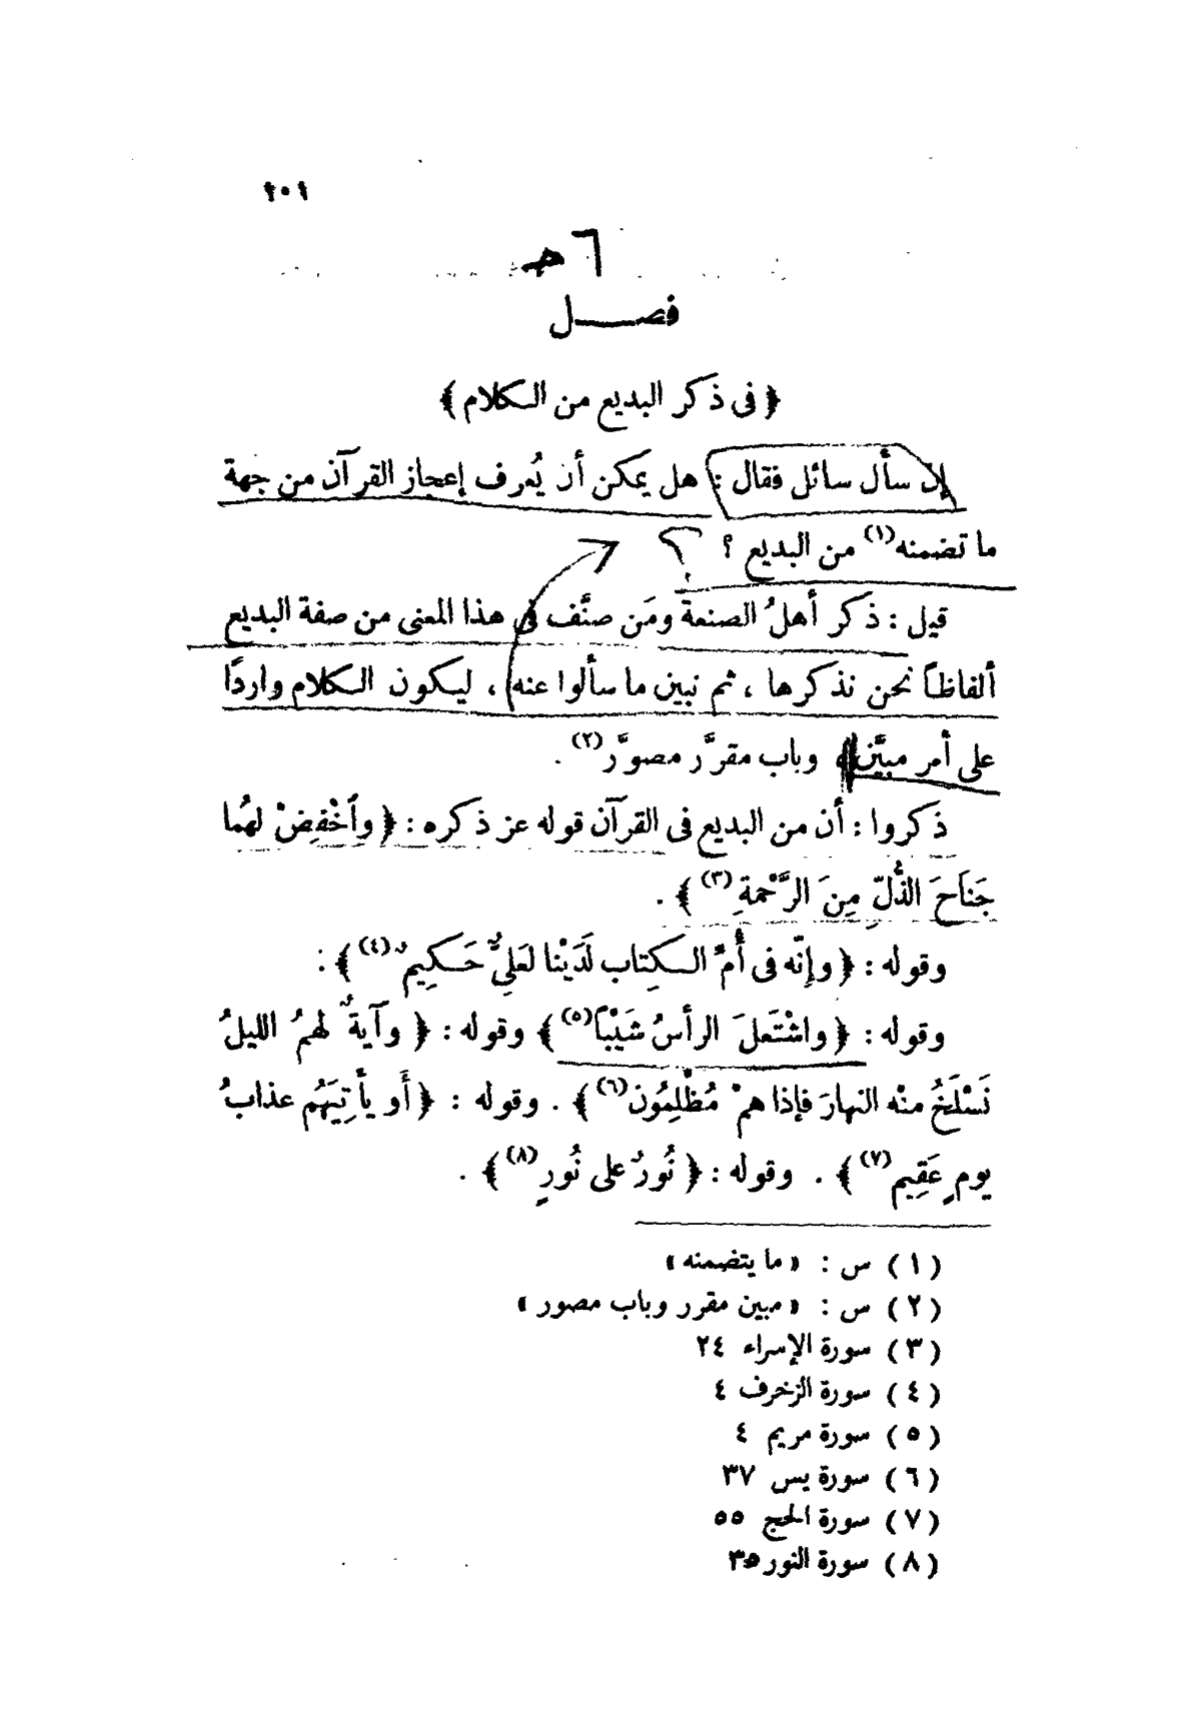 ١٠١
٦هـ
فصــل
﴿ فى ذكر البديع من الكلام ﴾
إن سأل سائل فقال : هل يمكن أن يُعرف إعجاز القرآن من جهة
ما تضمنه(١) من البديع ؟ ؟
قيل : ذكر أهلُ الصنعة ومَن صنَّف فى هذا المعنى من صفة البديع
ألفاظاً نحن نذكرها ، ثم نبين ما سألوا عنه ، ليكون الكلام واردًا
على أمر مبيَّن وباب مقرَّر مصوَّر(٢) .
ذكروا : أن من البديع فى القرآن قوله عز ذكره : ﴿ وٱخْفِضْ لهُما
جَنَاحَ الذُّلِّ مِنَ الرَّحْمةِ(٣) ﴾ .
وقوله : ﴿ وإنّه فى أُمِّ الكِتاب لَدَيْنا لعَلِىٌّ حَكِيمٌ(٤) ﴾ :
وقوله : ﴿ واشْتَعلَ الرأسُ شَيْبًا(٥) ﴾ وقوله : ﴿ وآيةٌ لهمُ الليلُ
نَسْلَخُ منْه النهارَ فإذا همْ مُظْلِمُون(٦) ﴾ . وقوله : ﴿ أَو يأْتِيَهُم عذابُ
يومٍ عَقِيم(٧) ﴾ . وقوله : ﴿ نُورٌ على نُورٍ(٨) ﴾ .
( ١ ) س : « ما يتضمنه »
( ٢ ) س : « مبين مقرر وباب مصور »
( ٣ ) سورة الإسراء ٢٤
( ٤ ) سورة الزخرف ٤
( ٥ ) سورة مريم ٤
( ٦ ) سورة يس ٣٧
( ٧ ) سورة الحج ٥٥
( ٨ ) سورة النور ٣٥